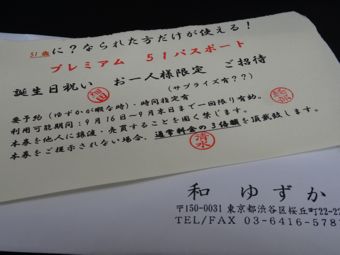 51歳に?なられた方だけが使える!
プレミアム 51パスポート
誕生日祝い お一人様限定 ご招待
(サプライズ有??)
要予約(ゆずかが暇な時)・時間指定有
利用可能期間:9月16日〜9月末日まで一回限り有効。
本券を他人に譲渡・売買することを固く禁じます。
本券をご提示されない場合、通常料金の3倍額を頂戴致します。
清水
和 ゆずか
〒150-0031 東京都渋谷区桜丘町22-2
TEL/FAX 03-6416-578